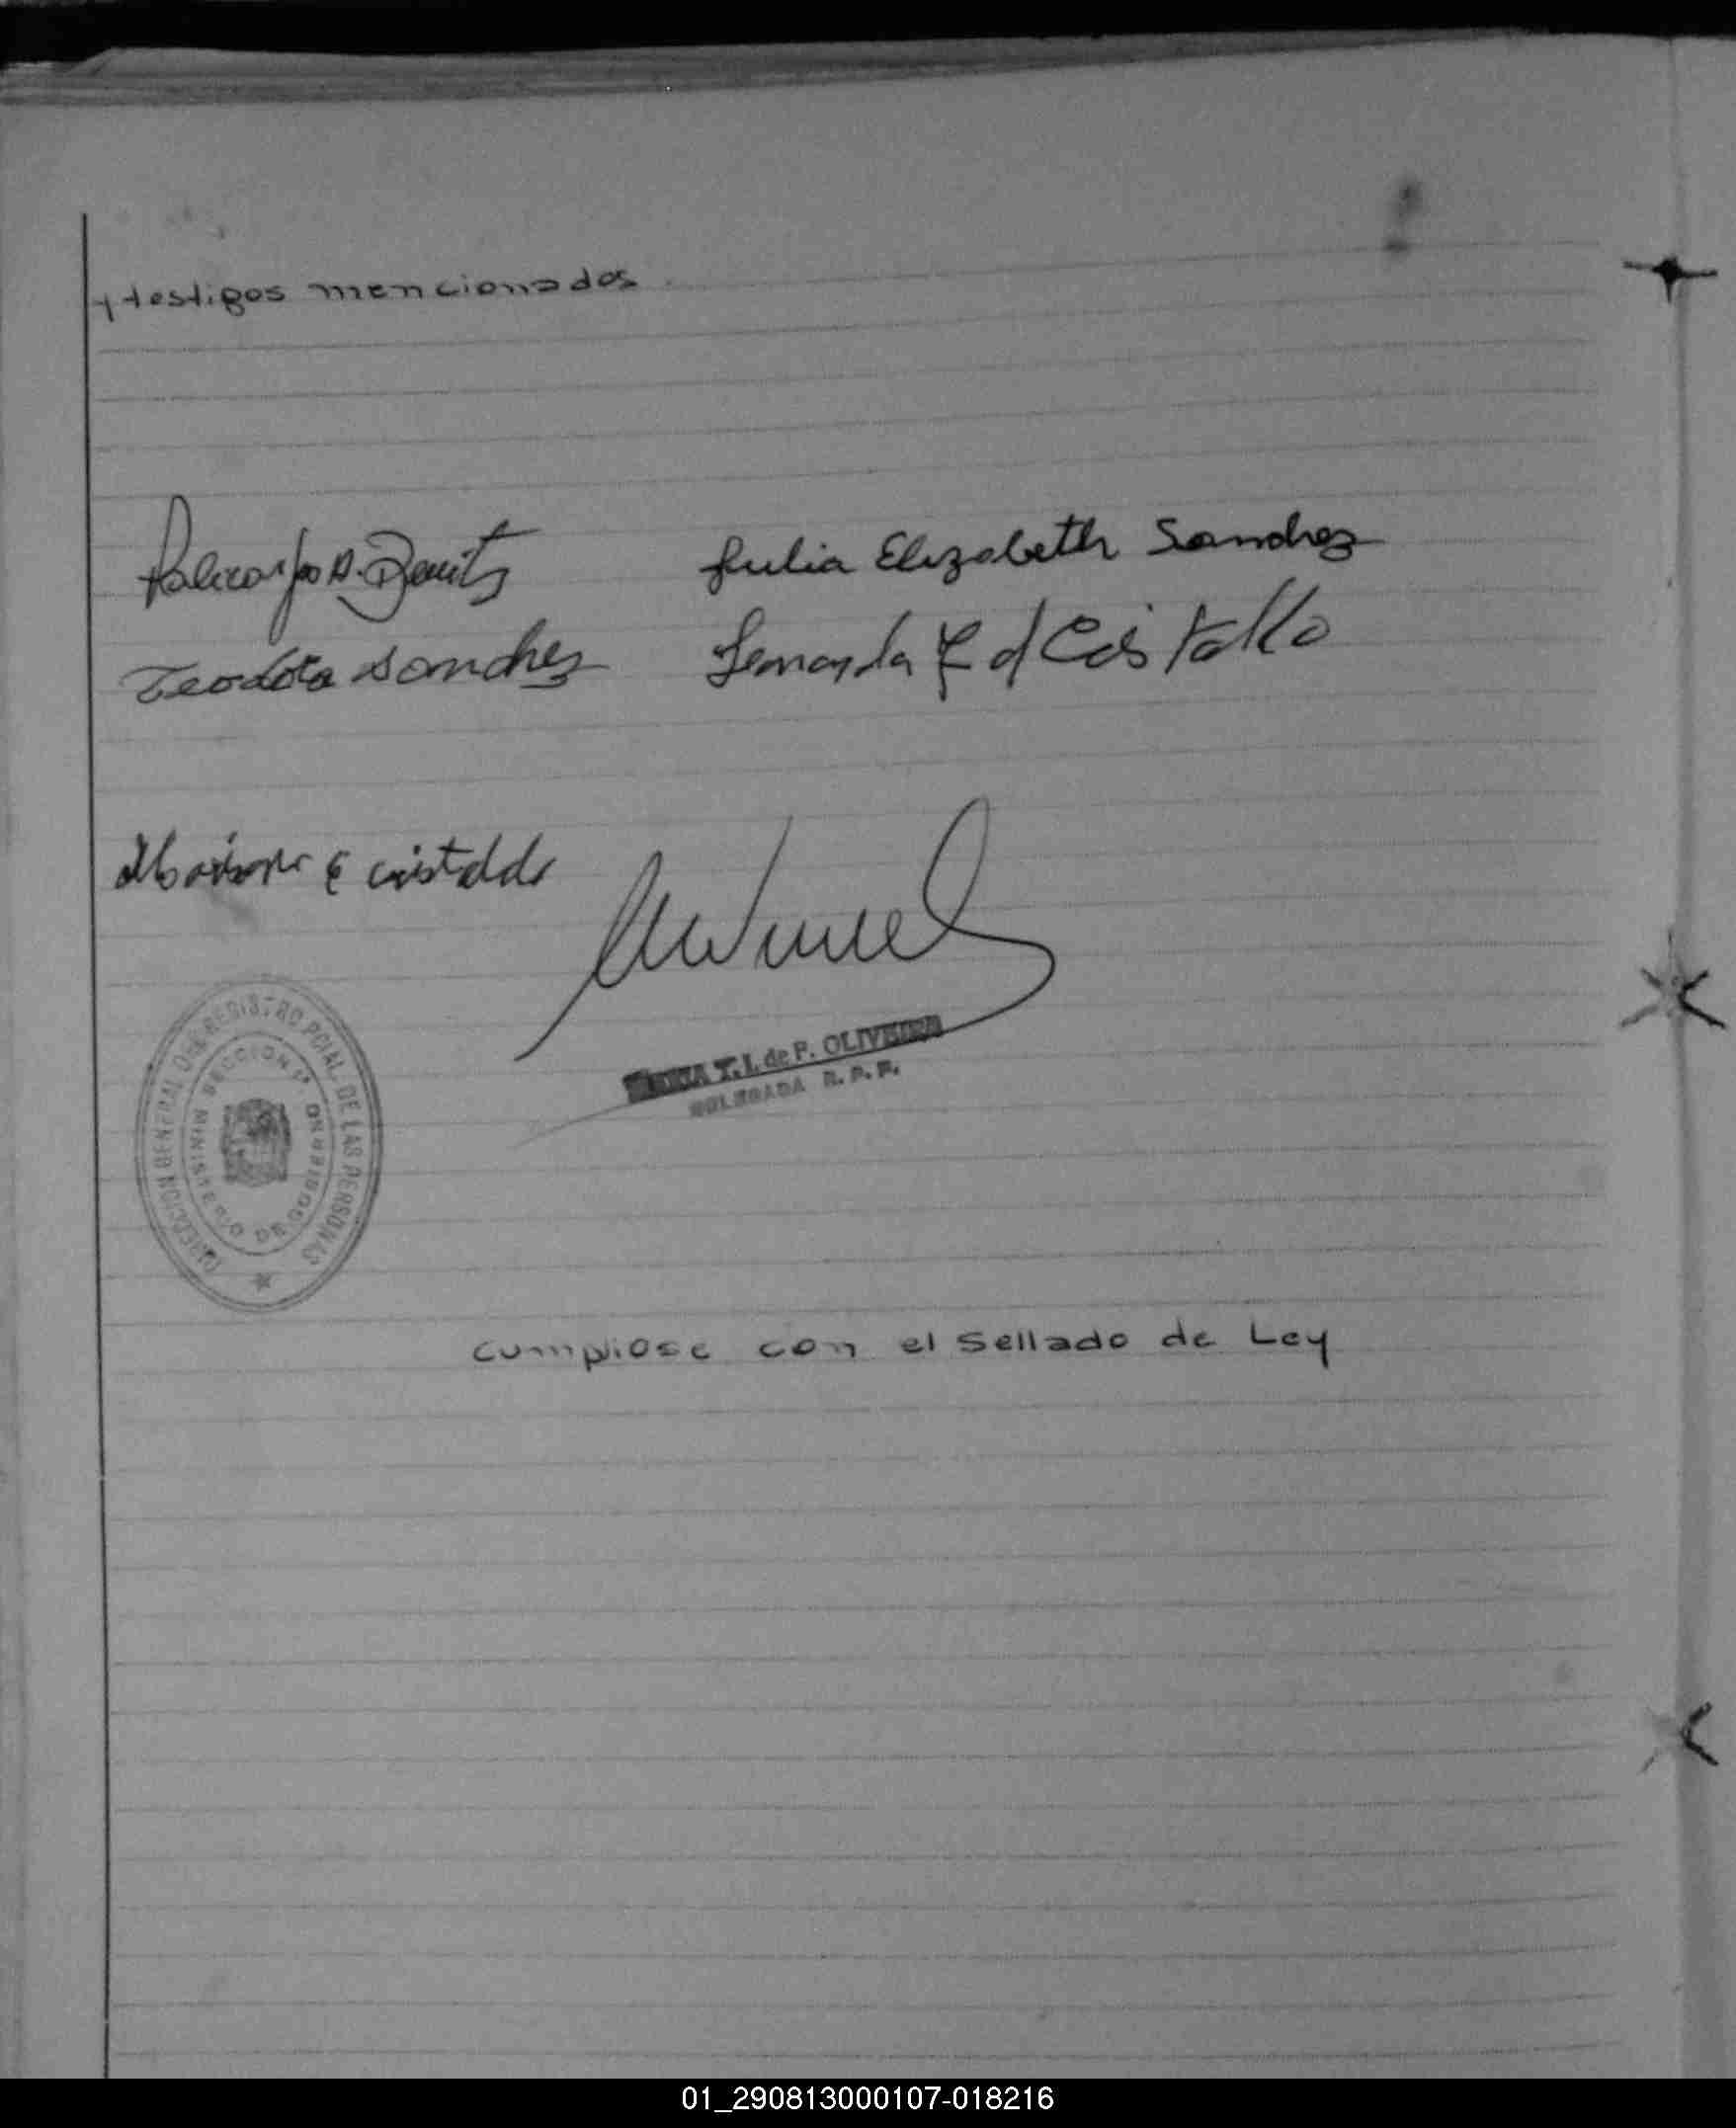 y testigos mencionados
Policarpo A. Benitz Julia Elizabeth Sanchez
Teodota Sanchez d
DIRECCION GENERAL DEL REGISTRO PCIAL. DE LAS PERSONAS
MINISTERIO DE GOBIERNO SECCION
T. I. de P. OLIVEIRA
DELEGADA R. P. P.
cumpliose con el sellado de Ley
01_290813000107-018216